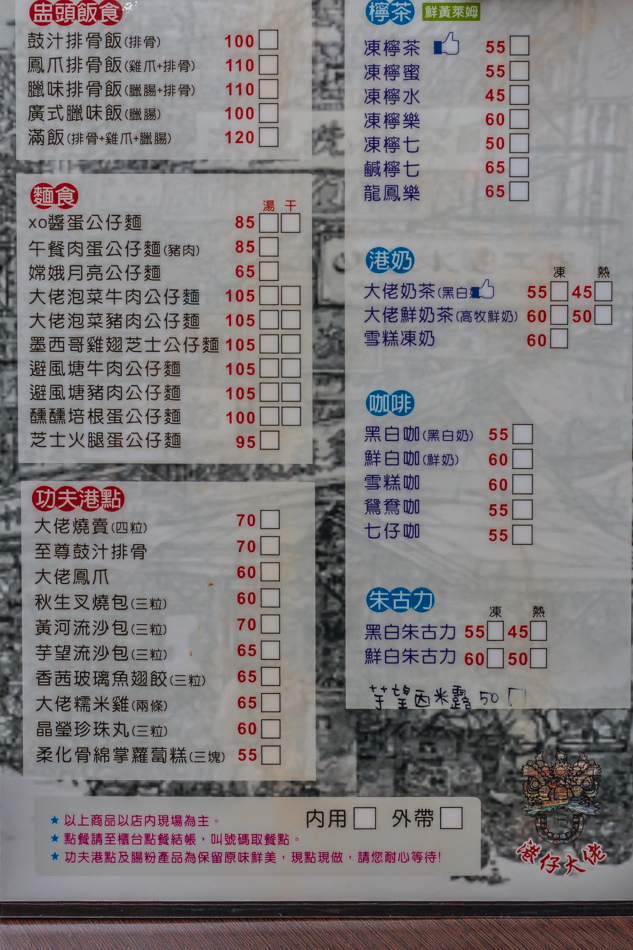 盅頭飯食
鼓汁排骨飯(排骨) 100
鳳爪排骨飯(雞爪+排骨) 110
臘味排骨飯(臘腸+排骨) 110
廣式臘味飯(臘腸) 100
滿飯(排骨+雞爪+臘腸) 120
麵食
湯 干
xo醬蛋公仔麵 85
午餐肉蛋公仔麵(豬肉) 85
嫦娥月亮公仔麵 65
大佬泡菜牛肉公仔麵 105
大佬泡菜豬肉公仔麵 105
墨西哥雞翅芝士公仔麵 105
避風塘牛肉公仔麵 105
避風塘豬肉公仔麵 105
醺醺培根蛋公仔麵 100
芝士火腿蛋公仔麵 95
功夫港點
大佬燒賣(四粒) 70
至尊鼓汁排骨 70
大佬鳳爪 60
秋生叉燒包(三粒) 60
黃河流沙包(三粒) 70
芋望流沙包(三粒) 65
香茜玻璃魚翅餃(三粒) 65
大佬糯米雞(兩條) 65
晶瑩珍珠丸(三粒) 60
柔化骨綿掌蘿蔔糕(三塊) 55
檸茶 鮮黃萊姆
凍檸茶 55
凍檸蜜 55
凍檸水 45
凍檸樂 60
凍檸七 50
鹹檸七 65
龍鳳樂 65
港奶
凍 熱
大佬奶茶(黑白 55 45
大佬鮮奶茶(高牧鮮奶) 60 50
雪糕凍奶 60
咖啡
黑白咖(黑白奶) 55
鮮白咖(鮮奶) 60
雪糕咖 60
鴛鴦咖 55
七仔咖 55
朱古力
凍 熱
黑白朱古力 55 45
鮮白朱古力 60 50
芋望西米露 50
★以上商品以店內現場為主。
★點餐請至櫃台點餐結帳，叫號碼取餐點。
★功夫港點及腸粉產品為保留原味鮮美，現點現做，請您耐心等待!
內用 外帶
港仔大佬